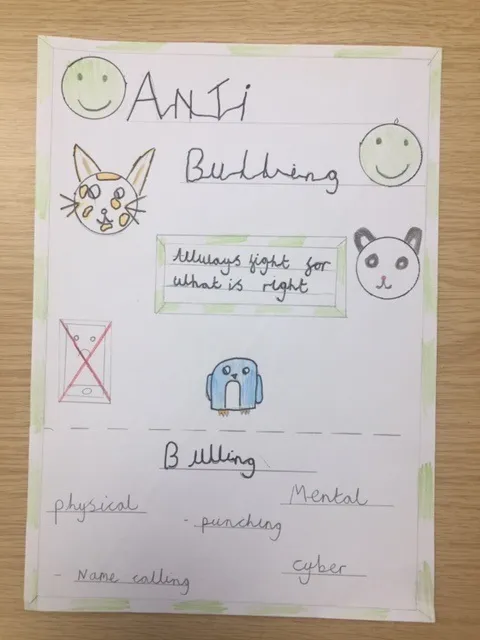 Anti
Bulling
Allways fight for
what is right
Bulling
physical
Mental
- punching
- Name calling
cyber